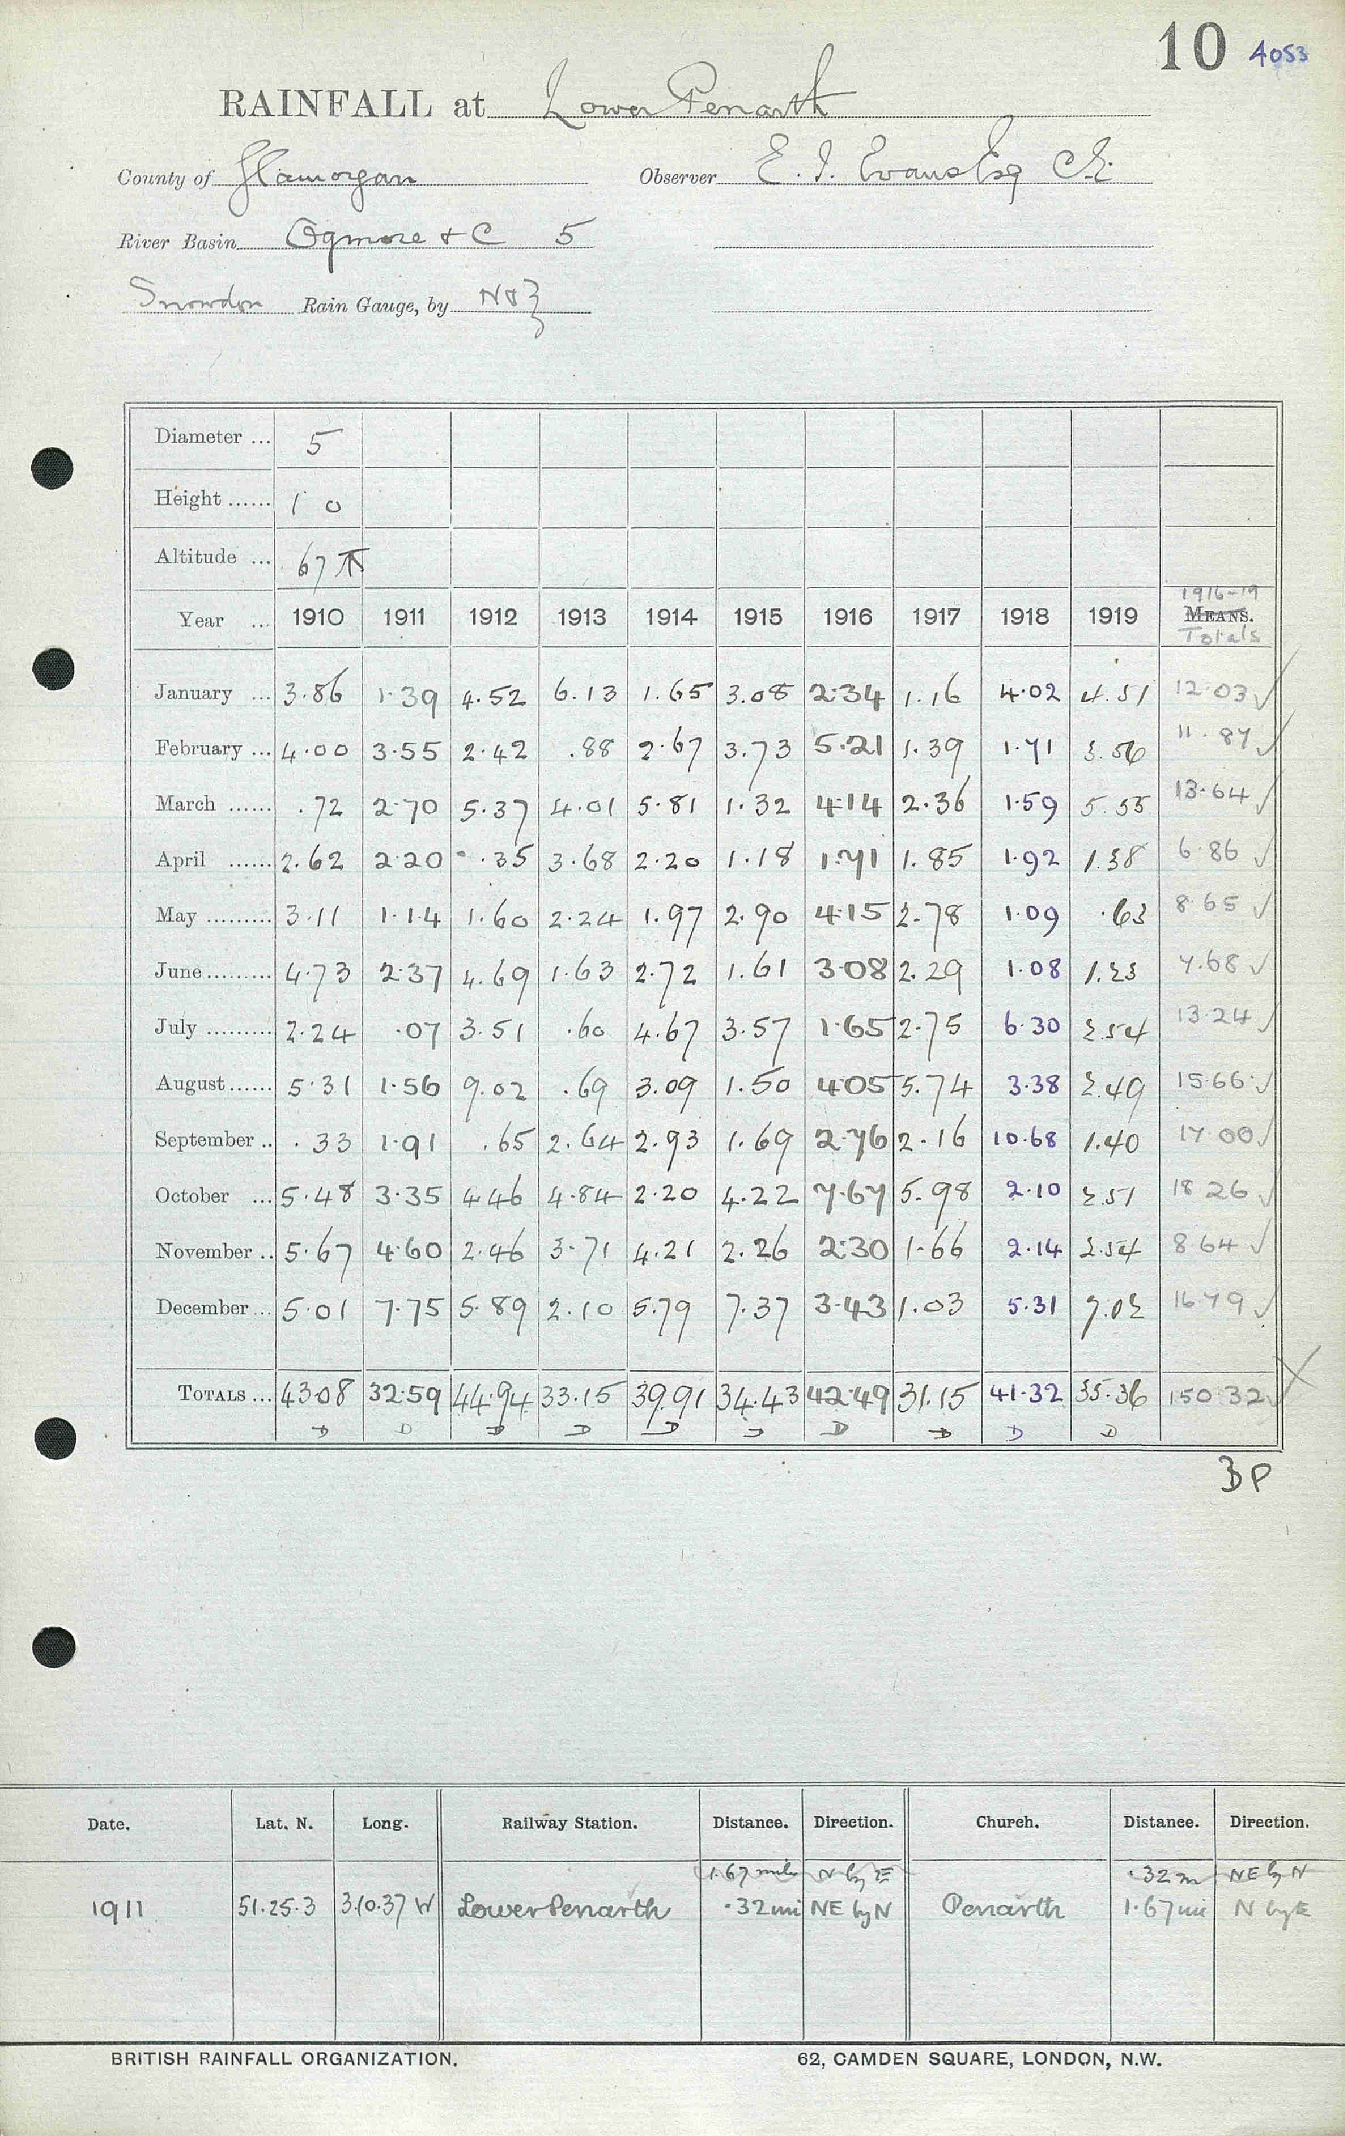 10 4053
RAINFALL at Lower Penarth
County of Glamorgan Observer E. I. Evans Esq C.E.
River Basin Ogmore & C 5
Snowdon Rain Gauge, by N & Z
Diameter ... 5
Height ...... 1 0
Altitude ... 67
1916-19
Year ... 1910 1911 1912 1913 1914 1915 1916 1917 1918 1919 MEANS.
Totals
January ... 3.86 1.39 4.52 6.13 1.65 3.08 2.34 1.16 4.02 4.51 12.03
February ... 4.00 3.55 2.42 .88 2.67 3.73 5.21 1.39 1.71 3.56 11.87
March ...... .72 2.70 5.37 4.01 5.81 1.32 4.14 2.36 1.59 5.55 13.64
April ...... 2.62 2.20 .35 3.68 2.20 1.18 1.71 1.85 1.92 1.38 6.86
May ......... 3.11 1.14 1.60 2.24 1.97 2.90 4.15 2.78 1.09 .63 8.65
June ......... 4.73 2.37 4.69 1.63 2.72 1.61 3.08 2.29 1.08 1.23 7.68
July ......... 2.24 .07 3.51 .60 4.67 3.57 1.65 2.75 6.30 2.54 13.24
August ...... 5.31 1.56 9.02 .69 3.09 1.50 4.05 5.74 3.38 2.49 15.66
September .. .33 1.91 .65 2.64 2.93 1.69 2.76 2.16 10.68 1.40 17.00
October ... 5.48 3.35 4.46 4.84 2.20 4.22 7.67 5.98 2.10 2.51 18.26
November .. 5.67 4.60 2.46 3.71 4.21 2.26 2.30 1.66 2.14 2.54 8.64
December ... 5.01 7.75 5.89 2.10 5.79 7.37 3.43 1.03 5.31 7.02 16.79
TOTALS ... 43.08 32.59 44.94 33.15 39.91 34.43 42.49 31.15 41.32 35.36 150.32
D D D D D D D D D D
BP
Date. Lat. N. Long. Railway Station. Distance. Direction. Church. Distance. Direction.
1.67 miles N by E .32 m NE by N
1911 51.25.3 3.10.37 W Lower Penarth .32 mi NE by N Penarth 1.67 mi N by E
BRITISH RAINFALL ORGANIZATION. 62, CAMDEN SQUARE, LONDON, N.W.